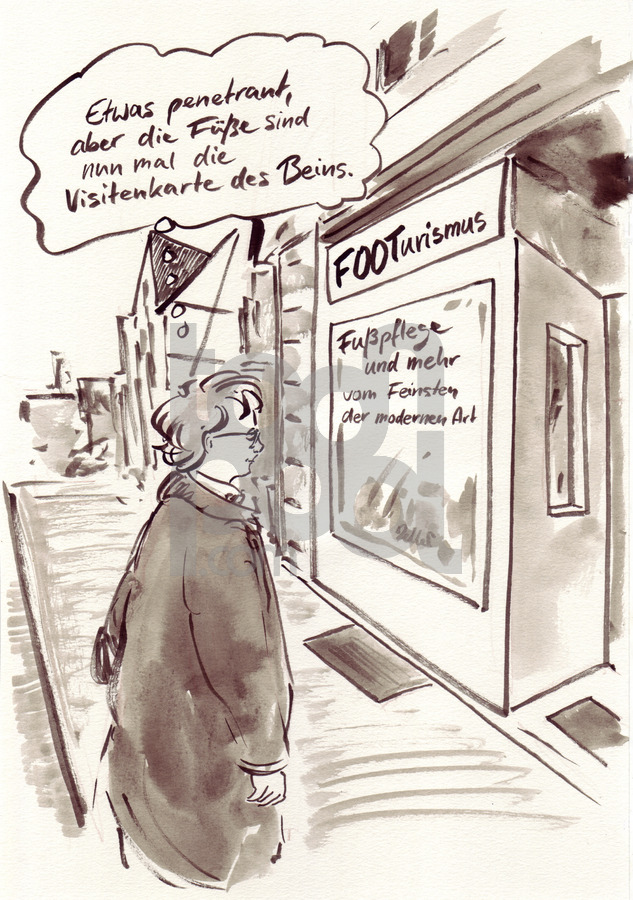 Etwas penetrant,
aber die Füße sind
nun mal die
Visitenkarte des Beins.
FOOTurismus
Fußpflege
und mehr
vom Feinsten
der modernen Art